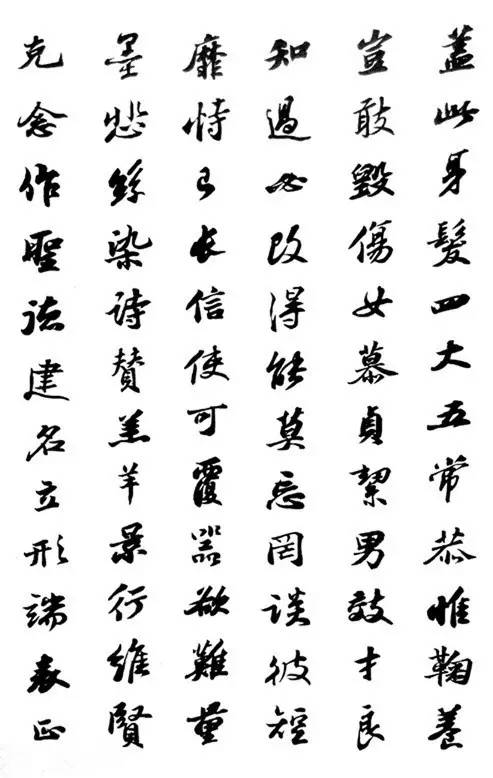 蓋此身髮四大五常恭惟鞠養
豈敢毀傷女慕貞絜男效才良
知過必改得能莫忘罔談彼短
靡恃己長信使可覆器欲難量
墨悲絲染詩贊羔羊景行維賢
克念作聖德建名立形端表正